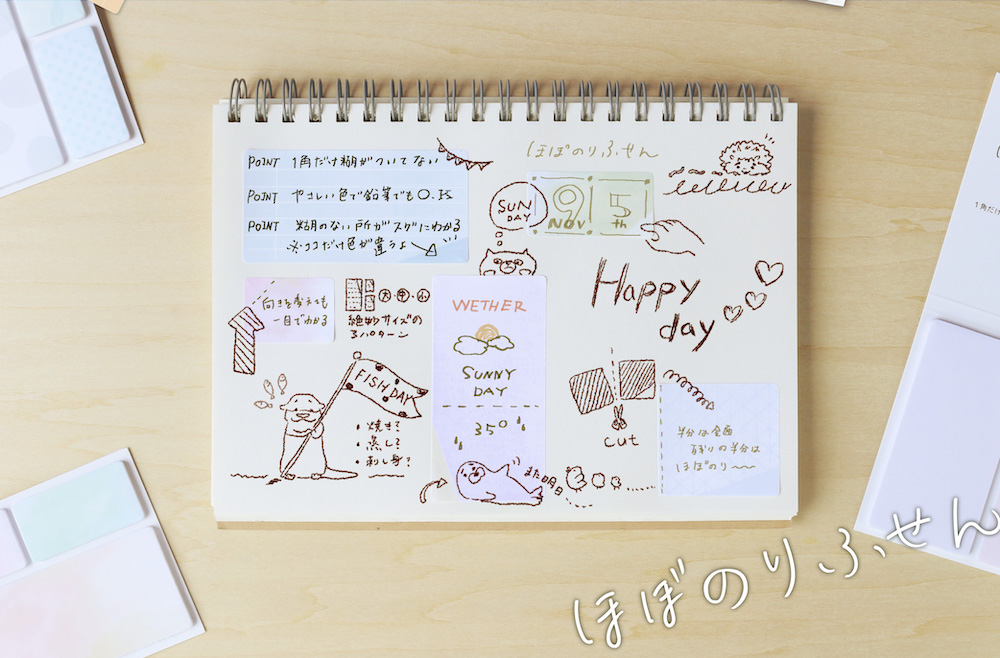 POINT 1角だけ糊がついてない
POINT やさしい色で鉛筆でもO.K
POINT 糊のない所がスグにわかる
※ココだけ色が違うよ
ほぼのりふせん
SUN
DAY
9
NOV
5
th
Happy
day
向きを変えても
一目でわかる
大・中・小
絶妙サイズの
3パターン
WETHER
SUNNY
DAY
35°
FISH DAY
・焼き?
・蒸し?
・刺し身?
また明日
cut
半分は全面
残りの半分は
ほぼのり〜〜
1角だけ
ほぼのりふせん